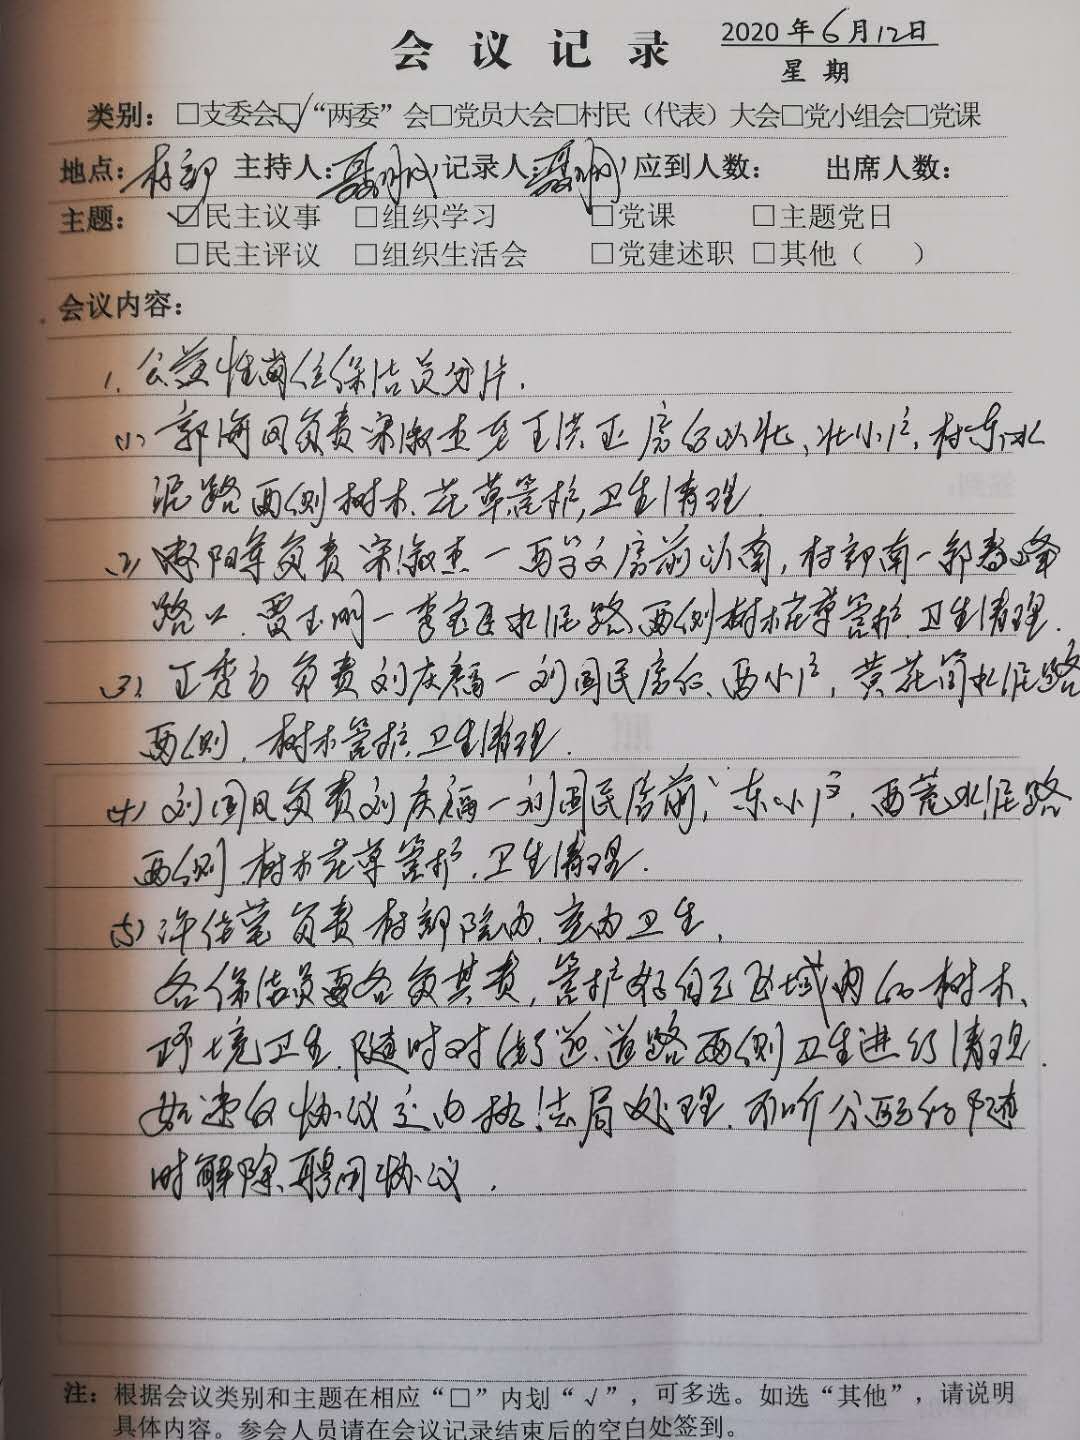 会议记录
2020年6月12日
星期
类别：□支委会☑“两委”会□党员大会□村民（代表）大会□党小组会□党课
地点：村部 主持人： 记录人： 应到人数： 出席人数：
主题：☑民主议事 □组织学习 □党课 □主题党日
□民主评议 □组织生活会 □党建述职 □其他（ ）
会议内容：
1. 公益性岗位保洁员分片.
(1) 郭海 负责宋淑杰至王洪 房后以北、北小户,村东水
泥路两侧树木、花草管护,卫生清理.
(2) 阳 负责宋淑杰一 房前以南,村部南一郭春峰
路口.贾玉明一李 水泥路两侧树木花草管护.卫生清理.
(3) 王秀 负责刘庆福一刘国民房后、西小户, 水泥路
两侧.树木管护.卫生清理.
(4) 刘国 负责刘庆福一刘国民房前,东小户.西荒水泥路
两侧.树木花草管护.卫生清理.
(5) 许 负责村部院内.室内卫生.
各保洁员要各负其责,管护好自己区域内的树木、
环境卫生.随时对街道、道路两侧卫生进行清理.
如违反协议交由执法局处理.不听分配的随
时解除聘用协议.
注：根据会议类别和主题在相应“□”内划“√”，可多选。如选“其他”，请说明
具体内容。参会人员请在会议记录结束后的空白处签到。